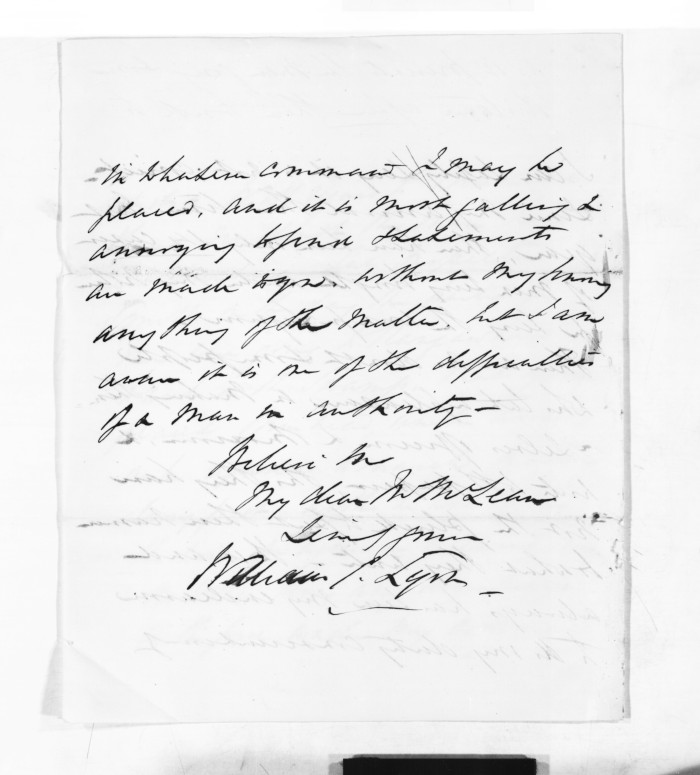 in whatever command I may be
placed, and it is most galling &
annoying to find statements
are made to you, without my knowing
anything of the matter, but I am
aware it is one of the difficulties
of a man in authority –
Believe me
My dear Mr McLean
Very Sincerely yours
William C. Lyon